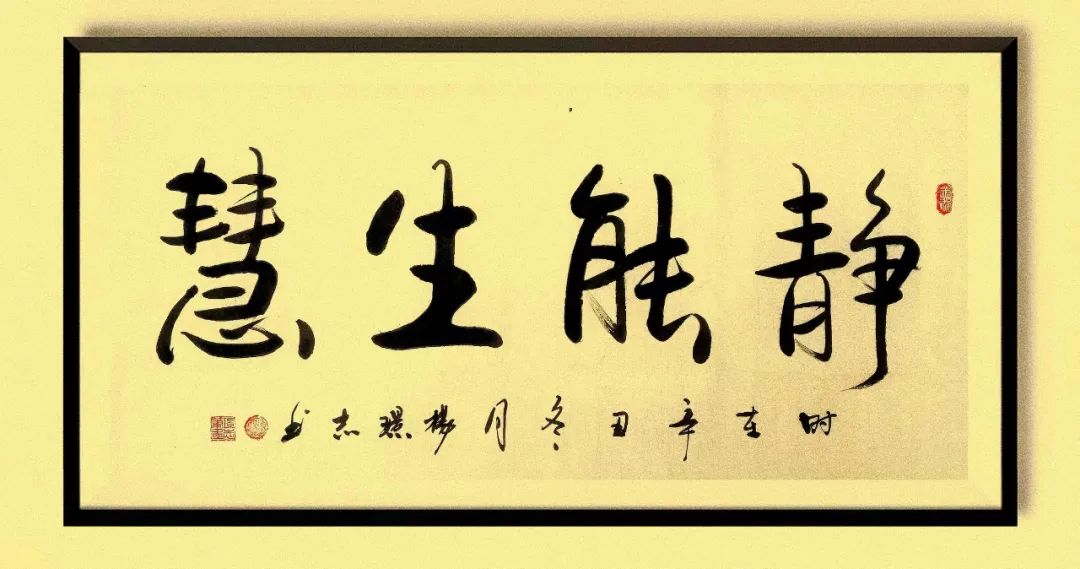 静能生慧
时在辛丑冬月杨璟志书